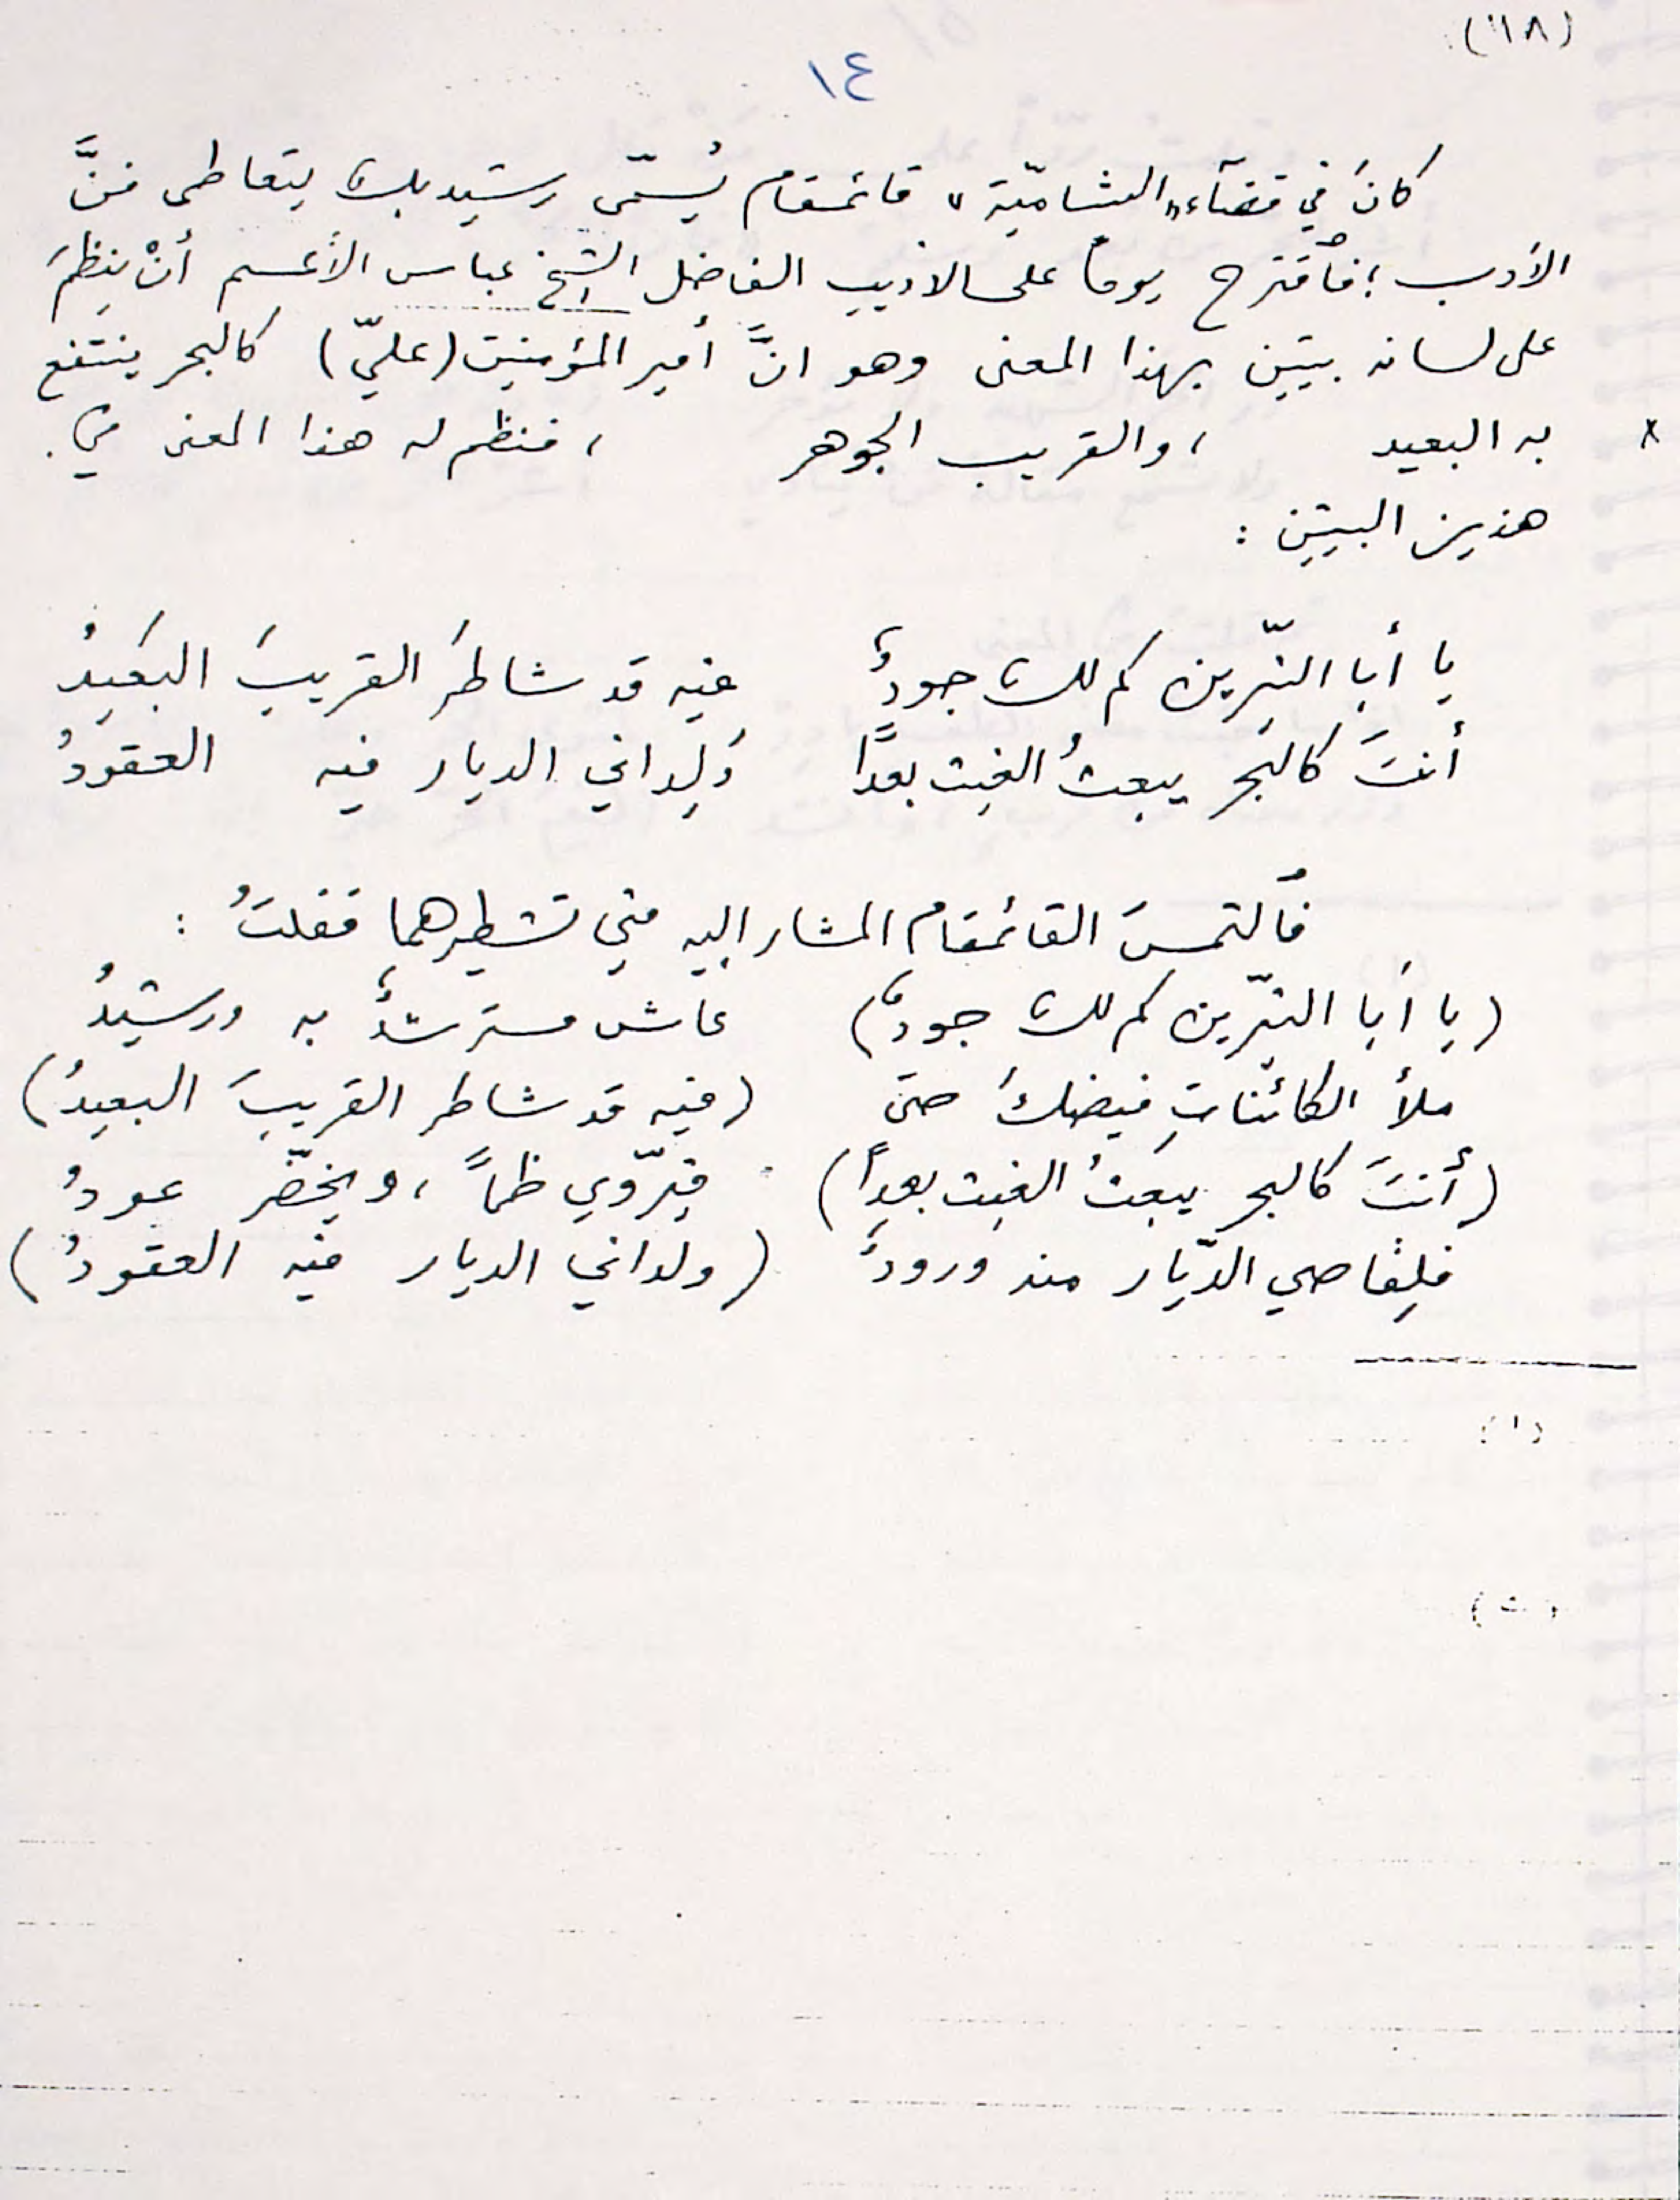 (١٨)
١٤
كانَ في قضآء «الشاميّة» قائمقام يُسمّى رشيد بك يتعاطى فنَّ
الأدب؛ فٱقترح يوماً على الاديب الفاضل الشيخ عباس الأعسم أنْ ينظمَ
على لسانه بيتين بهذا المعنى وهو انَّ أمير المؤمنين (عليّ) كالبحر ينتفع
به البعيد ، والقريب الجوهر ، فنظم له هذا المعنى في .
هذين البيتين :
يا أبا النيّرين كم لك جودٌ فيه قد شاطرَ القريبَ البعيدُ
أنتَ كالبحر يبعثُ الغيث بعداً وَلِداني الديار فيه العقودُ
فٱلتمسَ القائمقام المشار اليه مني تشطيرهما فقلتُ :
(يا أبا النيّرين كم لك جودٌ) عاش مسترشدٌ به ورشيدُ
ملأ الكائناتِ فيضكَ حتى (فيه قد شاطر القريبَ البعيدُ)
(أنتَ كالبحر يبعثُ الغيث بعداً) فيروّي ظمأً ، ويخضّر عودُ
فلِقاصي الدّيار منه ورودٌ (ولداني الديار فيه العقودُ)
(١)